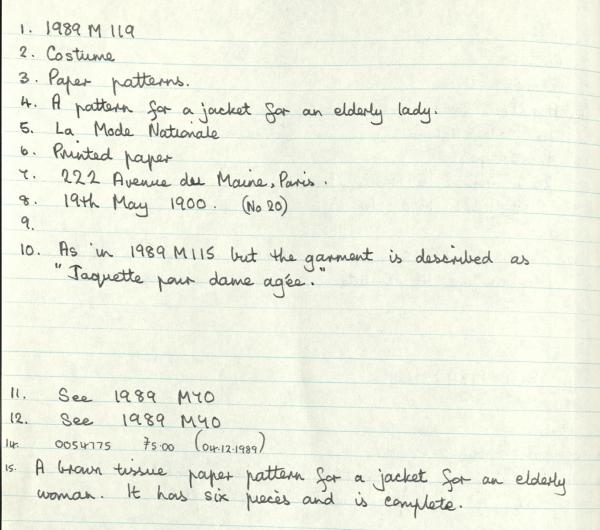 1. 1989 M 119
2. Costume
3. Paper patterns.
4. A pattern for a jacket for an elderly lady.
5. La Mode Nationale
6. Printed paper
7. 222 Avenue du Maine, Paris.
8. 19th May 1900. (No 20)
9.
10. As in 1989 M115 but the garment is described as
"Jaquette pour dame agée."
11. See 1989 M40
12. See 1989 M40
14. 0054775 75.00 (04.12.1989)
15. A brown tissue paper pattern for a jacket for an elderly
woman. It has six pieces and is complete.